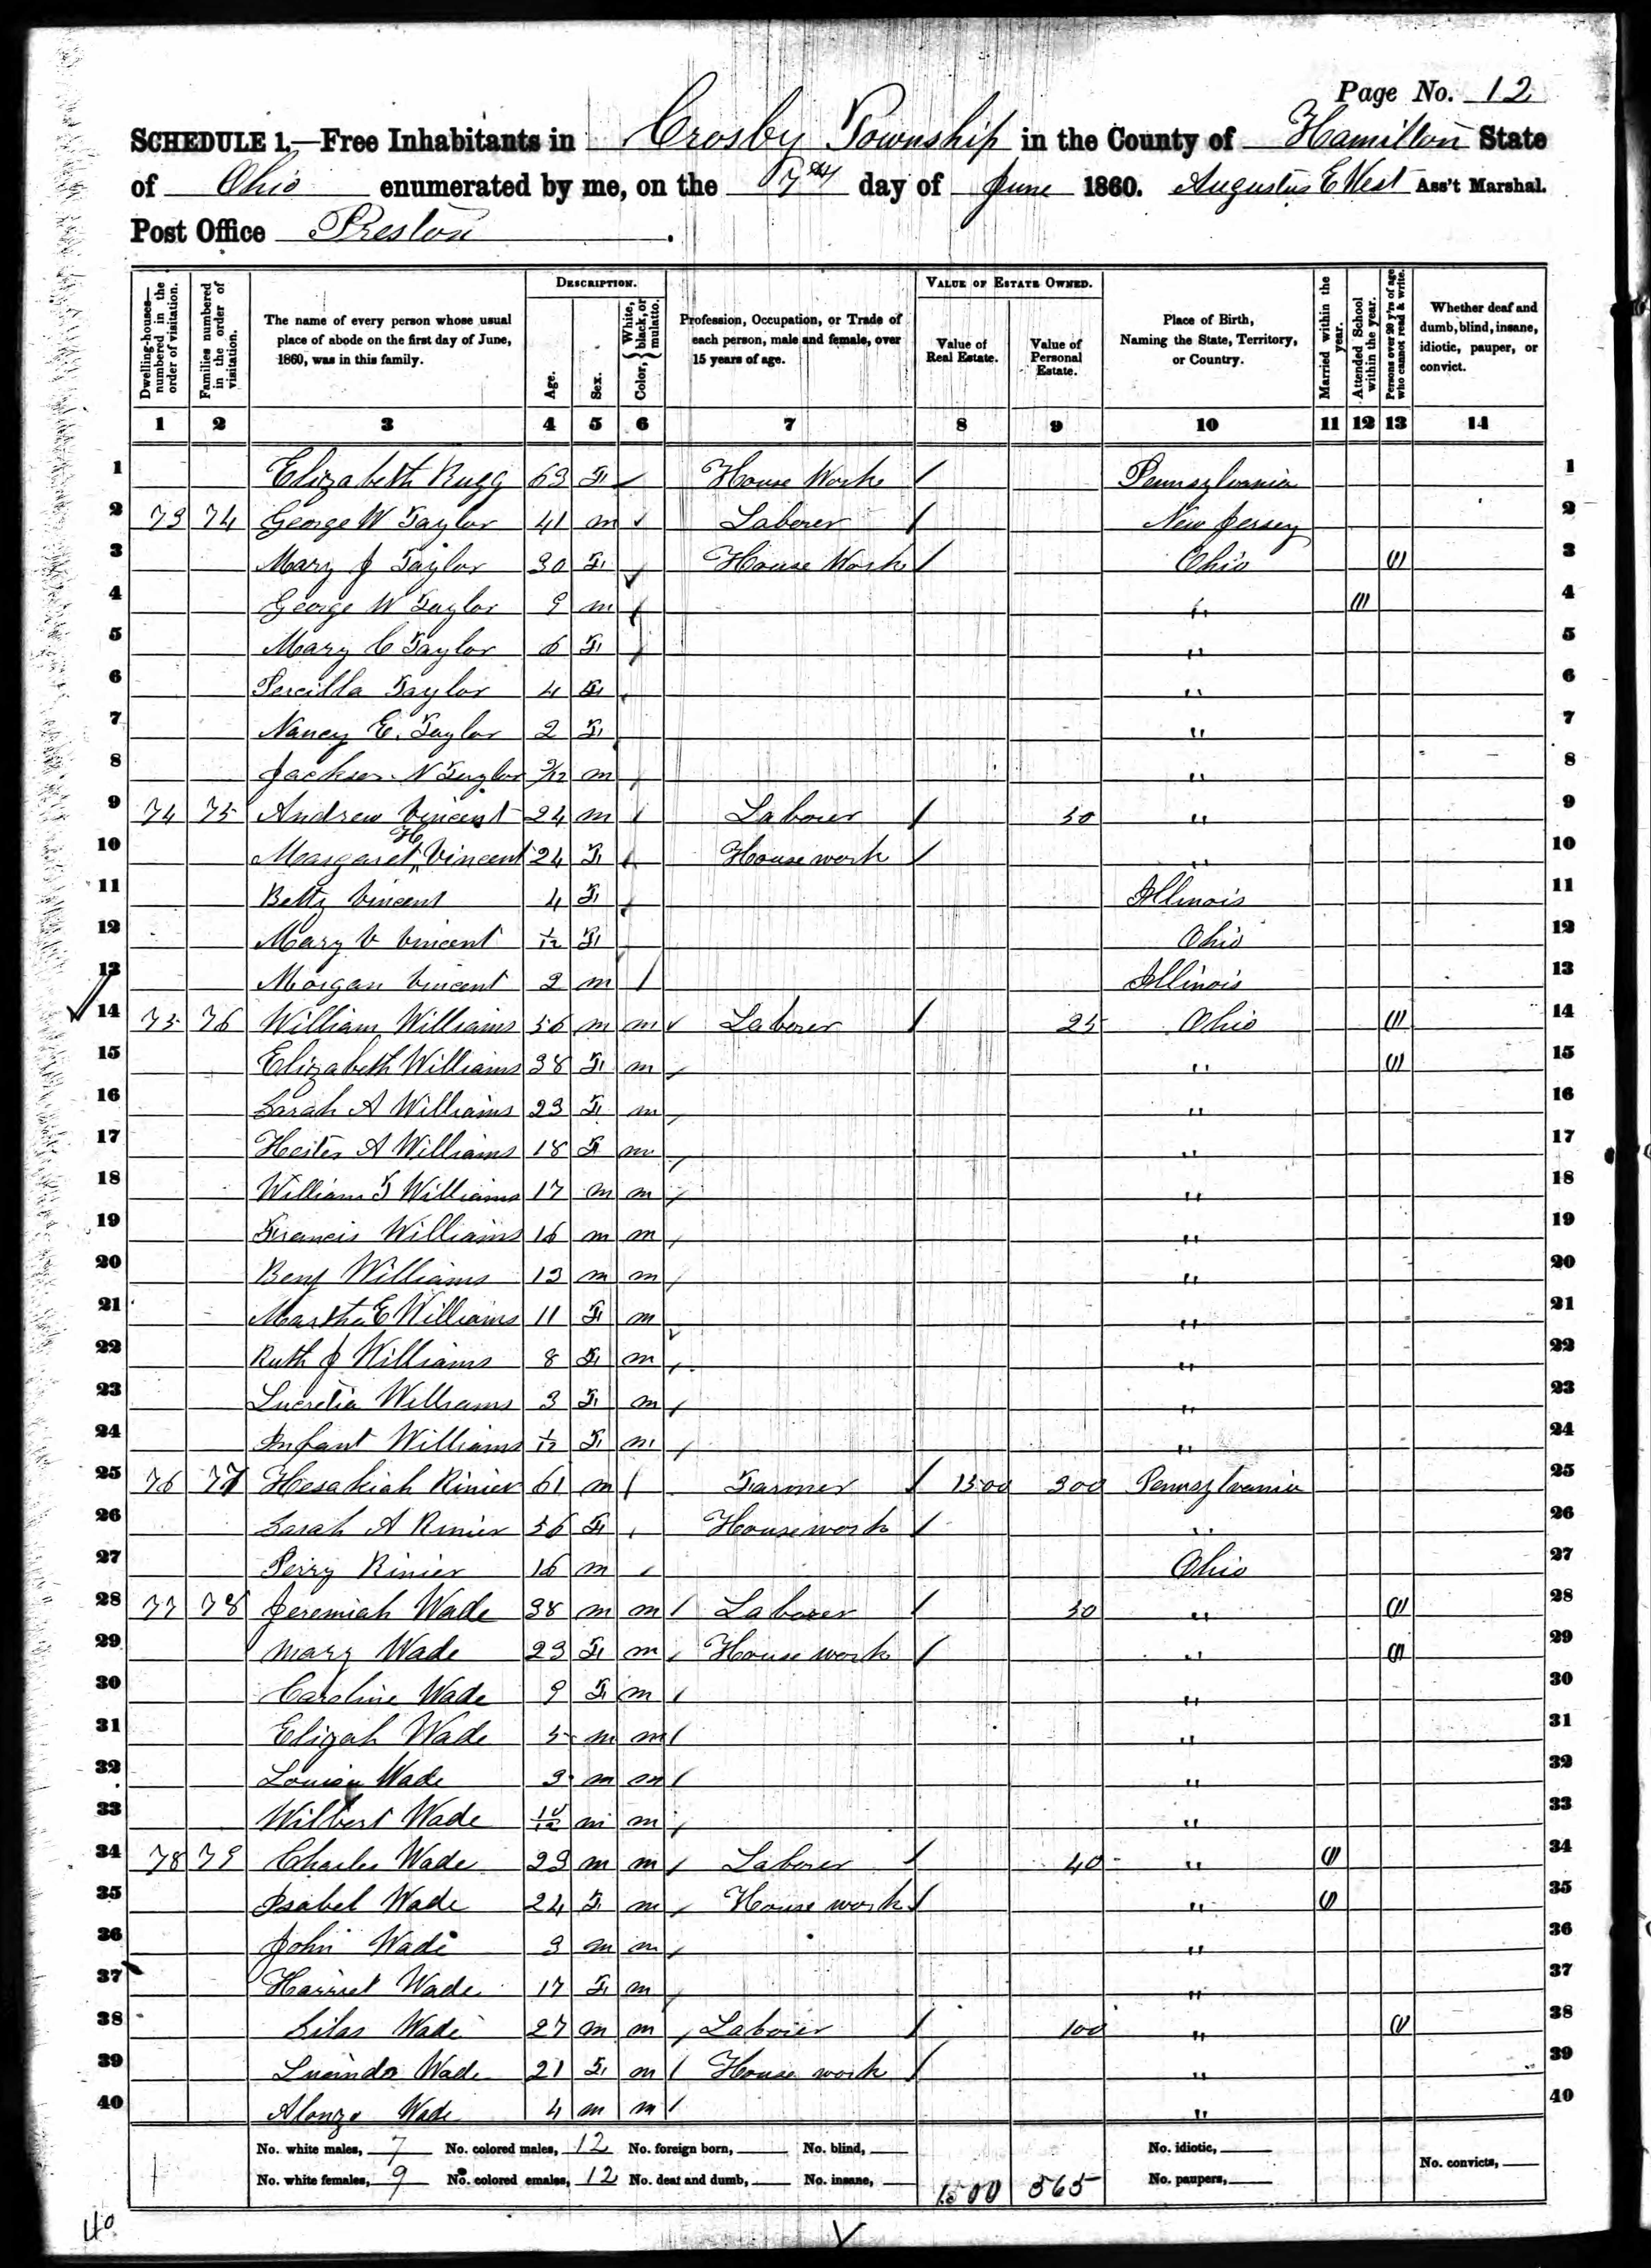 Page No. 12
SCHEDULE 1.—Free Inhabitants in Crosby Township in the County of Hamilton State
of Ohio enumerated by me, on the 7th day of June 1860. Augustus E West Ass't Marshal.
Post Office Preston.
Dwelling-houses—numbered in the order of visitation. Families numbered in the order of visitation. The name of every person whose usual place of abode on the first day of June, 1860, was in this family. DESCRIPTION. Age. Sex. Color, { White, black, or mulatto. Profession, Occupation, or Trade of each person, male and female, over 15 years of age. VALUE OF ESTATE OWNED. Value of Real Estate. Value of Personal Estate. Place of Birth, Naming the State, Territory, or Country. Married within the year. Attended School within the year. Persons over 20 y'rs of age who cannot read & write. Whether deaf and dumb, blind, insane, idiotic, pauper, or convict.
1 2 3 4 5 6 7 8 9 10 11 12 13 14
1 Elizabeth Rugg 63 F House Work / Pennsylvania 1
2 73 74 George W Taylor 41 m Laborer / New Jersey 2
3 Mary J Taylor 30 F House Work / Ohio /// 3
4 George W Taylor 9 m / " /// 4
5 Mary C Taylor 6 F / " 5
6 Percilla Taylor 4 F " 6
7 Nancy E. Taylor 2 F " 7
8 Jackson N Taylor m / " 8
9 74 75 Andrew Vincent 24 m / Laborer / 50 " 9
10 Margaret H Vincent 24 F / House work / " 10
11 Betty Vincent 4 F / Illinois 11
12 Mary V Vincent 1/12 F Ohio 12
13 Morgan Vincent 2 m / Illinois 13
14 75 76 William Williams 56 m m Laborer / 25 Ohio /// 14
15 Elizabeth Williams 38 F m / " /// 15
16 Sarah A Williams 23 F m / " 16
17 Hester A Williams 18 F m / " 17
18 William T Williams 17 m m / " 18
19 Francis Williams 16 m m / " 19
20 Benj Williams 13 m m / " 20
21 Martha E Williams 11 F m " 21
22 Ruth J Williams 8 F m / " 22
23 Lucretia Williams 3 F m / " 23
24 Infant Williams 1/12 F m / " 24
25 76 77 Hesakiah Rinier 61 m / Farmer / 1500 300 Pennsylvania 25
26 Sarah A Rinier 56 F / House work / " 26
27 Perry Rinier 16 m / Ohio 27
28 77 78 Jeremiah Wade 38 m m / Laborer / 50 " /// 28
29 Mary Wade 23 F m / House work / " /// 29
30 Caroline Wade 9 F m / " 30
31 Elizah Wade 5 m m / " 31
32 Wade 3 m m / " 32
33 Wilbert Wade 10/12 m m / " 33
34 78 79 Charles Wade 23 m m / Laborer / 40 " /// 34
35 Isabel Wade 24 F m / House work / " /// 35
36 John Wade 3 m m / " 36
37 Harriet Wade 17 F m / " 37
38 Silas Wade 27 m m / Laborer / 100 " /// 38
39 Lucinda Wade 21 F m / House work / " 39
40 Alonzo Wade 4 m m / " 40
No. white males, 7 No. colored males, 12 No. foreign born, No. blind, No. idiotic,
No. white females, 9 No. colored emales, 12 No. deaf and dumb, No. insane, 1500 565 No. paupers, No. convicts,
40